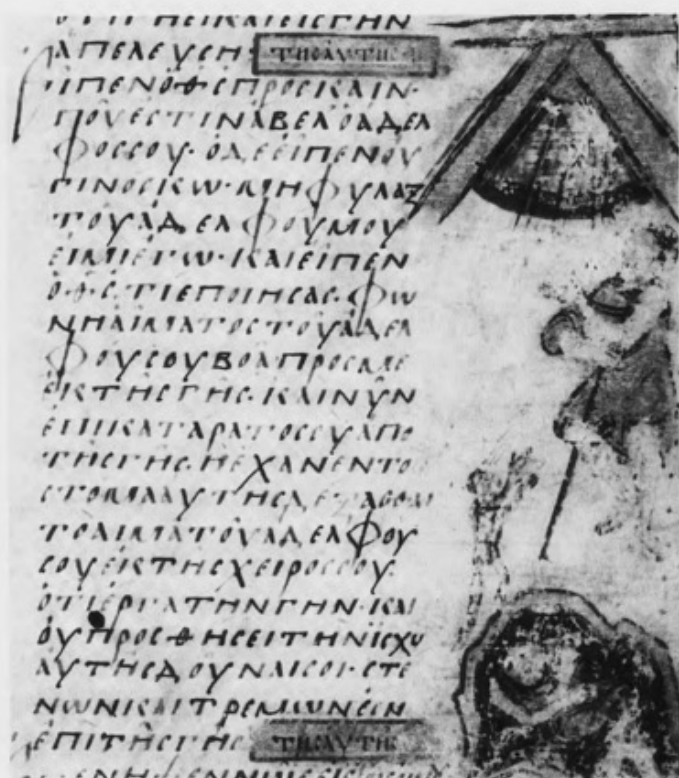 ΟΤΙΓΗΕΙΚΑΙΕΙCΓΗΝ
ΑΠΕΛΕΥCΗ· ΤΗCΑΥΤΗC
ΙΠΕΝΟΘCΠΡΟCΚΑΙΝ·
ΠΟΥΕCΤΙΝΑΒΕΛΟΑΔΕΛ
ΦΟCCΟΥ·ΟΔΕΕΙΠΕΝΟΥ
ΓΙΝΟCΚΩ·ΜΗΦΥΛΑΞ
ΤΟΥΑΔΕΛΦΟΥΜΟΥ
ΕΙΜΙΕΓΩ·ΚΑΙΕΙΠΕΝ
Ο·Θ·C·ΤΙΕΠΟΙΗCΑC·ΦΩ
ΝΗΑΙΜΑΤΟCΤΟΥΑΔΕΛ
ΦΟΥCΟΥΒΟΑΠΡΟCΜΕ
ΕΚΤΗCΓΗC·ΚΑΙΝΥΝ
ΕΠΙΚΑΤΑΡΑΤΟCCΥΑΠΟ
ΤΗCΓΗC·ΗΕΧΑΝΕΝΤΟ
CΤΟΜΑΑΥΤΗCΔΕΞΑCΘΑΙ
ΤΟΑΙΜΑΤΟΥΑΔΕΛΦΟΥ
CΟΥΕΚΤΗCΧΕΙΡΟCCΟΥ·
ΟΤΙΕΡΓΑΤΗΝΓΗΝ·ΚΑΙ
ΟΥΠΡΟCΘΗCΕΙΤΗΝΙCΧΥ
ΑΥΤΗCΔΟΥΝΑΙCΟΙ·CΤΕ
ΝΩΝΚΑΙΤΡΕΜΩΝΕCΗ
ΕΠΙΤΗCΓΗC ΤΗCΑΥΤΗC